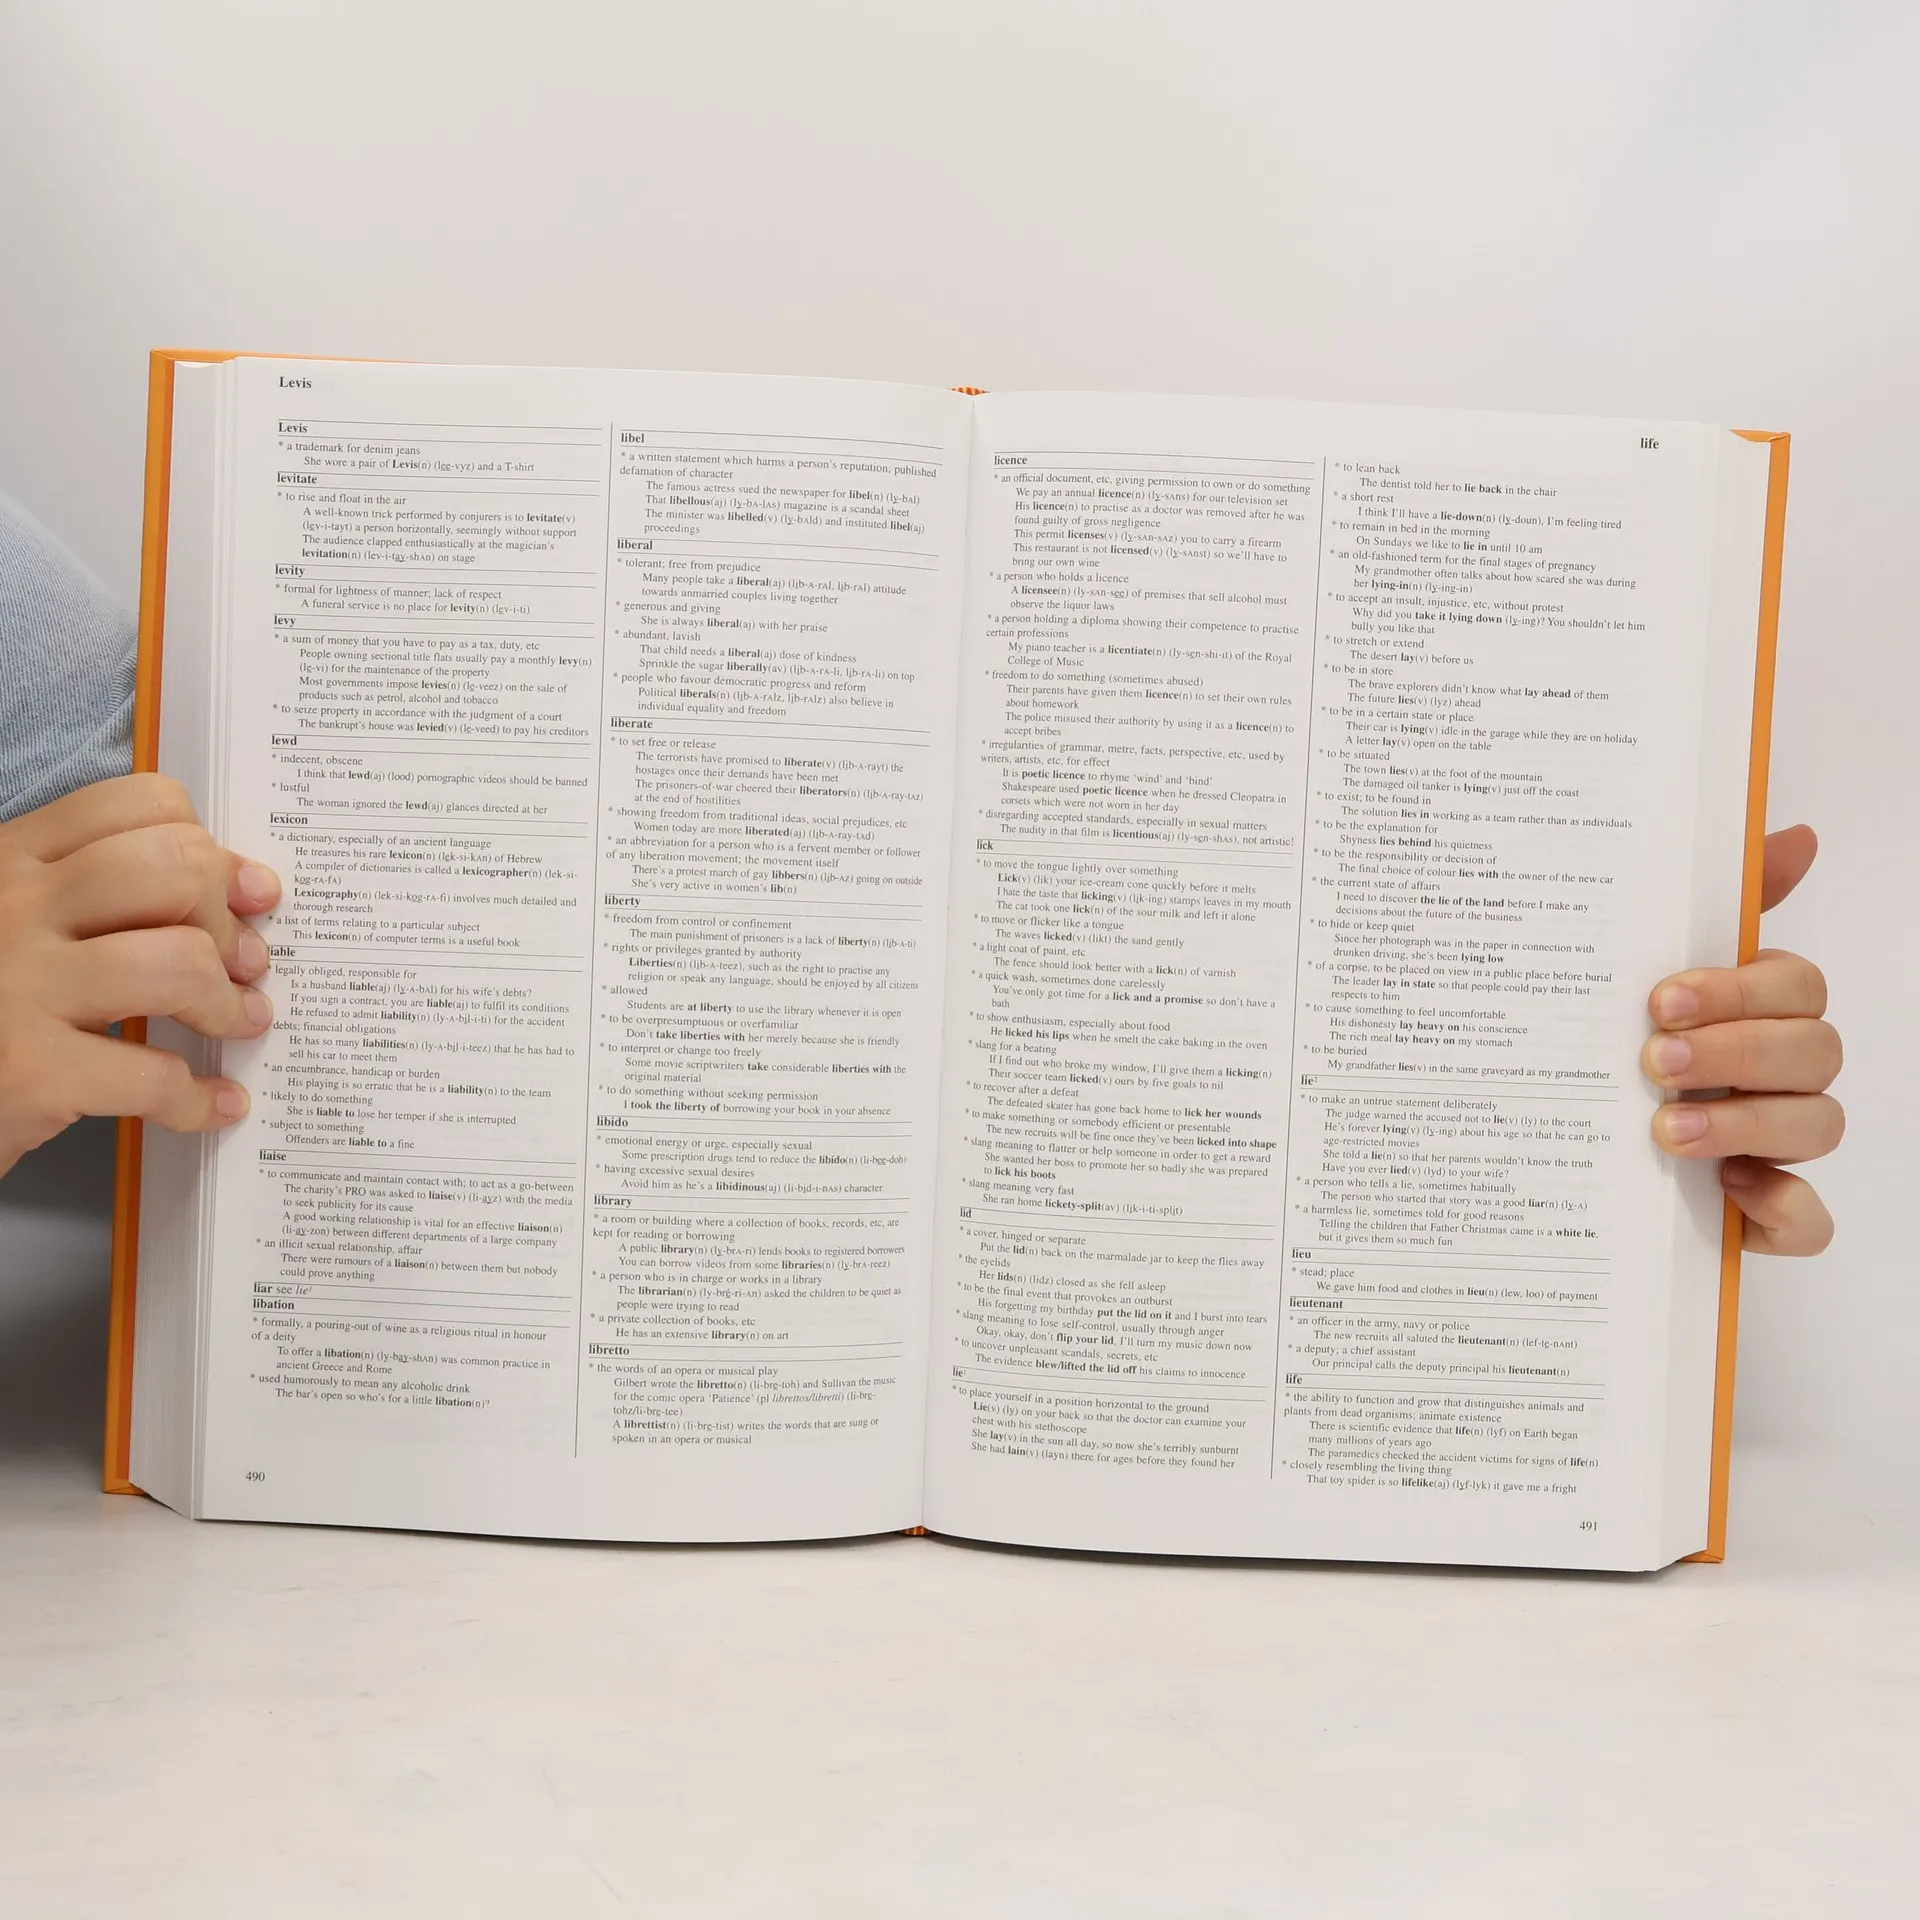 Levis
Levis
* a trademark for denim jeans
She wore a pair of Levis(n) (lee-vyz) and a T-shirt
levitate
* to rise and float in the air
A well-known trick performed by conjurers is to levitate(v)
(lev-i-tayt) a person horizontally, seemingly without support
The audience clapped enthusiastically at the magician's
levitation(n) (lev-i-tay-shAn) on stage
levity
* formal for lightness of manner; lack of respect
A funeral service is no place for levity(n) (lev-i-ti)
levy
* a sum of money that you have to pay as a tax, duty, etc
People owning sectional title flats usually pay a monthly levy(n)
(le-vi) for the maintenance of the property
Most governments impose levies(n) (le-veez) on the sale of
products such as petrol, alcohol and tobacco
* to seize property in accordance with the judgment of a court
The bankrupt's house was levied(v) (le-veed) to pay his creditors
lewd
* indecent, obscene
I think that lewd(aj) (lood) pornographic videos should be banned
* lustful
The woman ignored the lewd(aj) glances directed at her
lexicon
* a dictionary, especially of an ancient language
He treasures his rare lexicon(n) (lek-si-kAn) of Hebrew
A compiler of dictionaries is called a lexicographer(n) (lek-si-
kog-rA-fA)
Lexicography(n) (lek-si-kog-rA-fi) involves much detailed and
thorough research
* a list of terms relating to a particular subject
This lexicon(n) of computer terms is a useful book
liable
* legally obliged, responsible for
Is a husband liable(aj) (ly-A-bAl) for his wife's debts?
If you sign a contract, you are liable(aj) to fulfil its conditions
He refused to admit liability(n) (ly-A-bil-i-ti) for the accident
debts; financial obligations
He has so many liabilities(n) (ly-A-bil-i-teez) that he has had to
sell his car to meet them
* an encumbrance, handicap or burden
His playing is so erratic that he is a liability(n) to the team
* likely to do something
She is liable to lose her temper if she is interrupted
* subject to something
Offenders are liable to a fine
liaise
* to communicate and maintain contact with; to act as a go-between
The charity's PRO was asked to liaise(v) (li-ayz) with the media
to seek publicity for its cause
A good working relationship is vital for an effective liaison(n)
(li-ay-zon) between different departments of a large company
* an illicit sexual relationship, affair
There were rumours of a liaison(n) between them but nobody
could prove anything
liar see lie²
libation
* formally, a pouring-out of wine as a religious ritual in honour
of a deity
To offer a libation(n) (ly-bay-shAn) was common practice in
ancient Greece and Rome
* used humorously to mean any alcoholic drink
The bar's open so who's for a little libation(n)?
490
libel
* a written statement which harms a person's reputation; published
defamation of character
The famous actress sued the newspaper for libel(n) (ly-bAl)
That libellous(aj) (ly-bA-lAs) magazine is a scandal sheet
The minister was libelled(v) (ly-bAld) and instituted libel(aj)
proceedings
liberal
* tolerant; free from prejudice
Many people take a liberal(aj) (lib-A-rAl, lib-rAl) attitude
towards unmarried couples living together
* generous and giving
She is always liberal(aj) with her praise
* abundant, lavish
That child needs a liberal(aj) dose of kindness
Sprinkle the sugar liberally(av) (lib-A-rA-li, lib-rA-li) on top
* people who favour democratic progress and reform
Political liberals(n) (lib-A-rAlz, lib-rAlz) also believe in
individual equality and freedom
liberate
* to set free or release
The terrorists have promised to liberate(v) (lib-A-rayt) the
hostages once their demands have been met
The prisoners-of-war cheered their liberators(n) (lib-A-ray-tAz)
at the end of hostilities
* showing freedom from traditional ideas, social prejudices, etc
Women today are more liberated(aj) (lib-A-ray-tAd)
* an abbreviation for a person who is a fervent member or follower
of any liberation movement; the movement itself
There's a protest march of gay libbers(n) (lib-Az) going on outside
She's very active in women's lib(n)
liberty
* freedom from control or confinement
The main punishment of prisoners is a lack of liberty(n) (lib-A-ti)
* rights or privileges granted by authority
Liberties(n) (lib-A-teez), such as the right to practise any
religion or speak any language, should be enjoyed by all citizens
* allowed
Students are at liberty to use the library whenever it is open
* to be overpresumptuous or overfamiliar
Don't take liberties with her merely because she is friendly
* to interpret or change too freely
Some movie scriptwriters take considerable liberties with the
original material
* to do something without seeking permission
I took the liberty of borrowing your book in your absence
libido
* emotional energy or urge, especially sexual
Some prescription drugs tend to reduce the libido(n) (li-bee-doh)
* having excessive sexual desires
Avoid him as he's a libidinous(aj) (li-bid-i-nAs) character
library
* a room or building where a collection of books, records, etc, are
kept for reading or borrowing
A public library(n) (ly-brA-ri) lends books to registered borrowers
You can borrow videos from some libraries(n) (ly-brA-reez)
* a person who is in charge or works in a library
The librarian(n) (ly-bre-ri-An) asked the children to be quiet as
people were trying to read
* a private collection of books, etc
He has an extensive library(n) on art
libretto
* the words of an opera or musical play
Gilbert wrote the libretto(n) (li-bre-toh) and Sullivan the music
for the comic opera 'Patience' (pl librettos/libretti) (li-bre-
tohz/li-bre-tee)
A librettist(n) (li-bre-tist) writes the words that are sung or
spoken in an opera or musical
life
licence
* an official document, etc, giving permission to own or do something
We pay an annual licence(n) (ly-sAns) for our television set
His licence(n) to practise as a doctor was removed after he was
found guilty of gross negligence
This permit licenses(v) (ly-sAn-sAz) you to carry a firearm
This restaurant is not licensed(v) (ly-sAnst) so we'll have to
bring our own wine
* a person who holds a licence
A licensee(n) (ly-sAn-see) of premises that sell alcohol must
observe the liquor laws
* a person holding a diploma showing their competence to practise
certain professions
My piano teacher is a licentiate(n) (ly-sen-shi-it) of the Royal
College of Music
* freedom to do something (sometimes abused)
Their parents have given them licence(n) to set their own rules
about homework
The police misused their authority by using it as a licence(n) to
accept bribes
* irregularities of grammar, metre, facts, perspective, etc, used by
writers, artists, etc, for effect
It is poetic licence to rhyme 'wind' and 'bind'
Shakespeare used poetic licence when he dressed Cleopatra in
corsets which were not worn in her day
* disregarding accepted standards, especially in sexual matters
The nudity in that film is licentious(aj) (ly-sen-shAs), not artistic!
lick
* to move the tongue lightly over something
Lick(v) (lik) your ice-cream cone quickly before it melts
I hate the taste that licking(v) (lik-ing) stamps leaves in my mouth
The cat took one lick(n) of the sour milk and left it alone
* to move or flicker like a tongue
The waves licked(v) (likt) the sand gently
* a light coat of paint, etc
The fence should look better with a lick(n) of varnish
* a quick wash, sometimes done carelessly
You've only got time for a lick and a promise so don't have a
bath
* to show enthusiasm, especially about food
He licked his lips when he smelt the cake baking in the oven
* slang for a beating
If I find out who broke my window, I'll give them a licking(n)
Their soccer team licked(v) ours by five goals to nil
* to recover after a defeat
The defeated skater has gone back home to lick her wounds
* to make something or somebody efficient or presentable
The new recruits will be fine once they've been licked into shape
* slang meaning to flatter or help someone in order to get a reward
She wanted her boss to promote her so badly she was prepared
to lick his boots
* slang meaning very fast
She ran home lickety-split(av) (lik-i-ti-split)
lid
* a cover, hinged or separate
Put the lid(n) back on the marmalade jar to keep the flies away
* the eyelids
Her lids(n) (lidz) closed as she fell asleep
* to be the final event that provokes an outburst
His forgetting my birthday put the lid on it and I burst into tears
* slang meaning to lose self-control, usually through anger
Okay, okay, don't flip your lid, I'll turn my music down now
* to uncover unpleasant scandals, secrets, etc
The evidence blew/lifted the lid off his claims to innocence
lie¹
* to place yourself in a position horizontal to the ground
Lie(v) (ly) on your back so that the doctor can examine your
chest with his stethoscope
She lay(v) in the sun all day, so now she's terribly sunburnt
She had lain(v) (layn) there for ages before they found her
* to lean back
The dentist told her to lie back in the chair
* a short rest
I think I'll have a lie-down(n) (ly-doun), I'm feeling tired
* to remain in bed in the morning
On Sundays we like to lie in until 10 am
* an old-fashioned term for the final stages of pregnancy
My grandmother often talks about how scared she was during
her lying-in(n) (ly-ing-in)
* to accept an insult, injustice, etc, without protest
Why did you take it lying down (ly-ing)? You shouldn't let him
bully you like that
* to stretch or extend
The desert lay(v) before us
* to be in store
The brave explorers didn't know what lay ahead of them
The future lies(v) (lyz) ahead
* to be in a certain state or place
Their car is lying(v) idle in the garage while they are on holiday
A letter lay(v) open on the table
* to be situated
The town lies(v) at the foot of the mountain
The damaged oil tanker is lying(v) just off the coast
* to exist; to be found in
The solution lies in working as a team rather than as individuals
* to be the explanation for
Shyness lies behind his quietness
* to be the responsibility or decision of
The final choice of colour lies with the owner of the new car
* the current state of affairs
I need to discover the lie of the land before I make any
decisions about the future of the business
* to hide or keep quiet
Since her photograph was in the paper in connection with
drunken driving, she's been lying low
* of a corpse, to be placed on view in a public place before burial
The leader lay in state so that people could pay their last
respects to him
* to cause something to feel uncomfortable
His dishonesty lay heavy on his conscience
The rich meal lay heavy on my stomach
* to be buried
My grandfather lies(v) in the same graveyard as my grandmother
lie²
* to make an untrue statement deliberately
The judge warned the accused not to lie(v) (ly) to the court
He's forever lying(v) (ly-ing) about his age so that he can go to
age-restricted movies
She told a lie(n) so that her parents wouldn't know the truth
Have you ever lied(v) (lyd) to your wife?
* a person who tells a lie, sometimes habitually
The person who started that story was a good liar(n) (ly-A)
* a harmless lie, sometimes told for good reasons
Telling the children that Father Christmas came is a white lie,
but it gives them so much fun
lieu
* stead; place
We gave him food and clothes in lieu(n) (lew, loo) of payment
lieutenant
* an officer in the army, navy or police
The new recruits all saluted the lieutenant(n) (lef-te-nAnt)
* a deputy; a chief assistant
Our principal calls the deputy principal his lieutenant(n)
life
* the ability to function and grow that distinguishes animals and
plants from dead organisms; animate existence
There is scientific evidence that life(n) (lyf) on Earth began
many millions of years ago
The paramedics checked the accident victims for signs of life(n)
* closely resembling the living thing
That toy spider is so lifelike(aj) (lyf-lyk) it gave me a fright
491